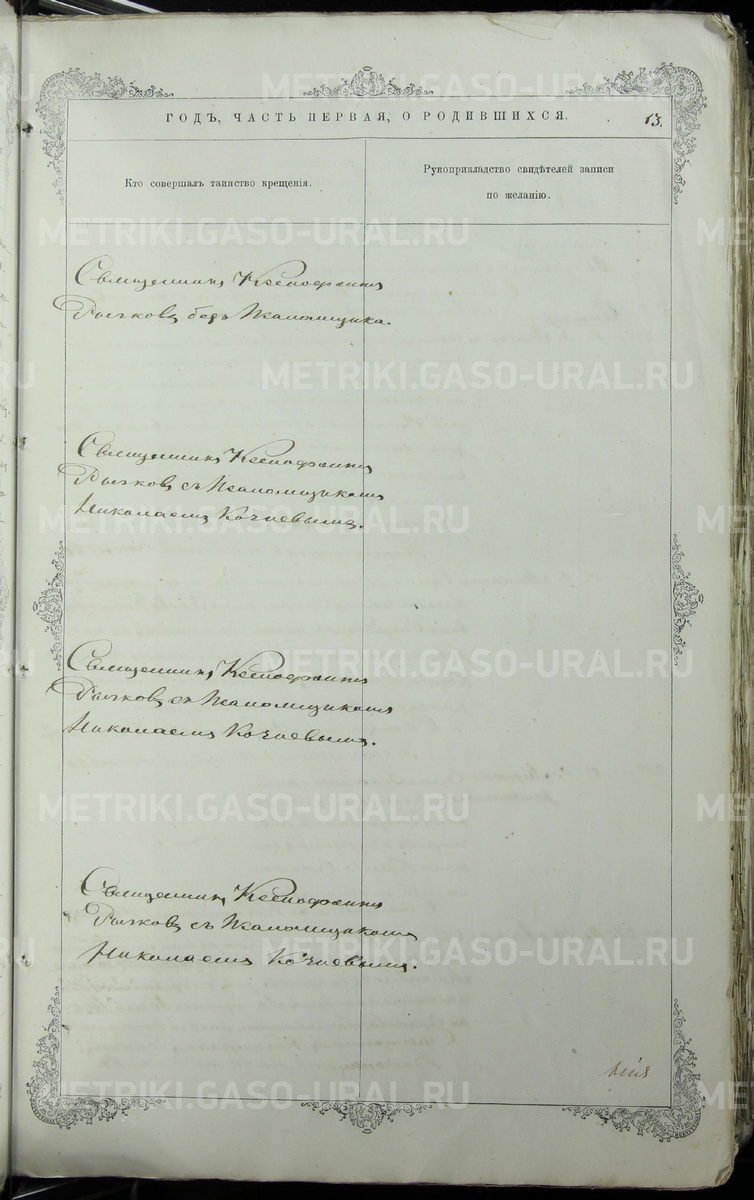 ГОДЪ, ЧАСТЬ ПЕРВАЯ, О РОДИВШИХСЯ.
13.
Кто совершалъ таинство крещенія.
Рукоприкладство свидѣтелей записи
по желанію.
Священникъ Ксенофонтъ
Рычковъ безъ Псаломщика.
Священникъ Ксенофонтъ
Рычковъ съ Псаломщикомъ
Николаемъ
Священникъ Ксенофонтъ
Рычковъ съ Псаломщикомъ
Николаемъ
Священникъ Ксенофонтъ
Рычковъ съ Псаломщикомъ
Николаемъ
METRIKI.GASO-URAL.RU